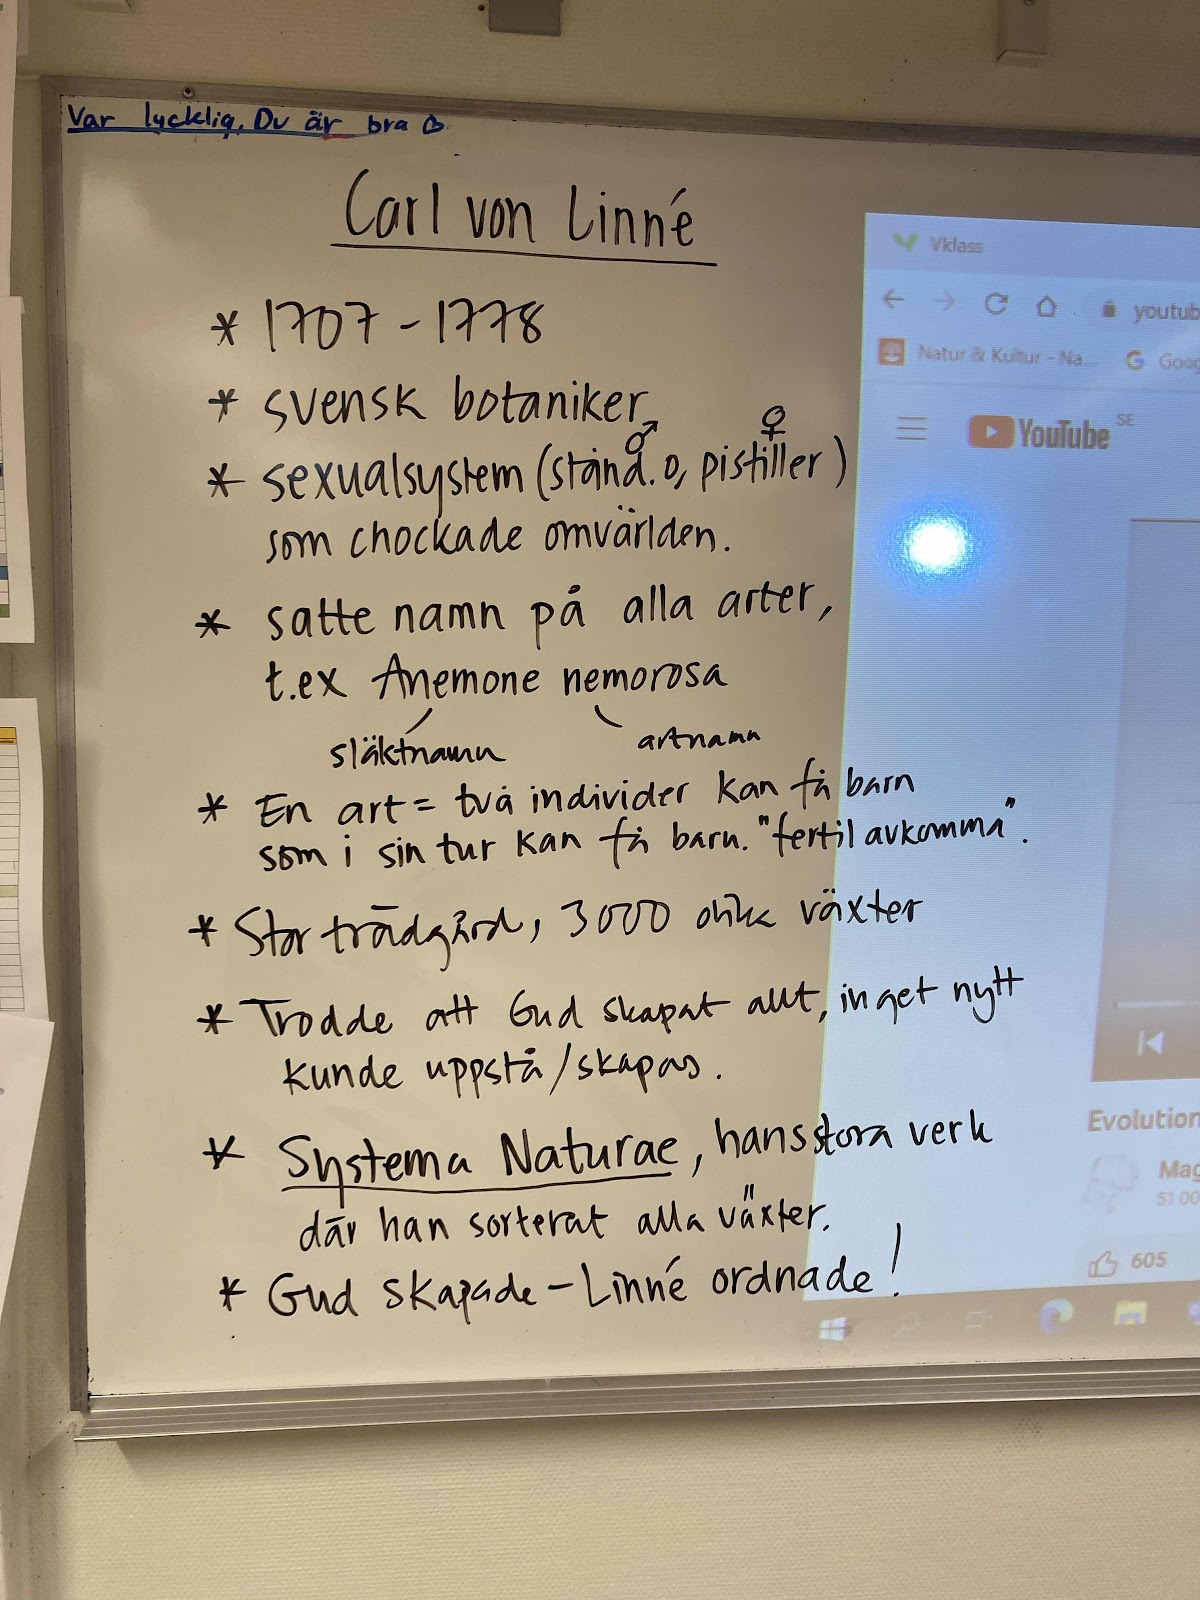 Var lycklig, Du är bra
Carl von Linné
* 1707-1778
* svensk botaniker
♂ ♀
* sexualsystem (stånd. o, pistiller)
som chockade omvärlden.
* satte namn på alla arter,
t.ex Anemone nemorosa
släktnamn artnamn
* En art = två individer kan få barn
som i sin tur kan få barn. "fertil avkomma".
* Stor trädgård, 3000 olika växter
* Trodde att Gud skapat allt, inget nytt
kunde uppstå/skapas.
* Systema Naturae, hans stora verk
där han sorterat alla växter.
* Gud skapade - Linné ordnade!
Vklass
youtub
Natur & Kultur - Na... Goog
YouTube SE
Evolution
Mag
51 00
605